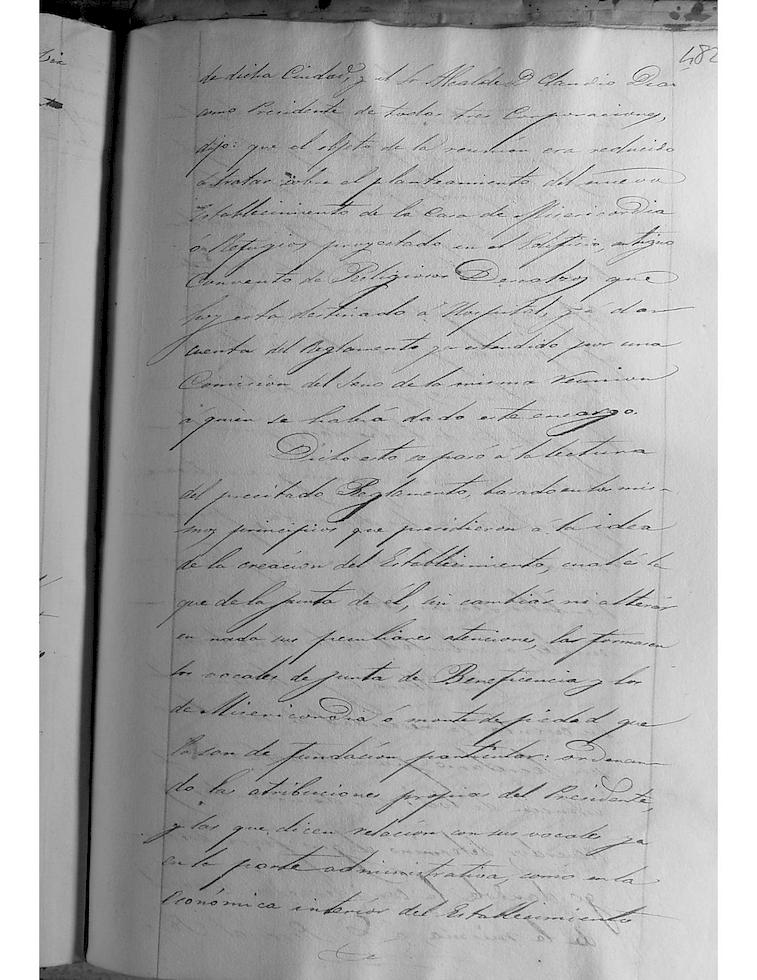 482
de dicha Ciudad, y el Sr Alcalde D Claudio
como Presidente de todas tres Corporaciones,
dijo: que el objeto de la reunion era reducido
a tratar sobre el planteamiento del nuevo
Establecimiento de la Casa de Misericordia
ó Refugio proyectado en el Edificio, antiguo
Convento de Religiosos Descalzos que
hoy esta destinado á Hospital, y á dar
cuenta del Reglamento por una
Comision del seno de la misma reunion
á quien se habia dado este encargo.
Dicho esto se pasó á la lectura
del precitado Reglamento, basado en los mis-
mos principios que presidieron á la idea
de la creación del Establecimiento, cual és la
que de la junta de él, sin cambiár ni alterár
en nada sus peculiares atenciones, las formasen
los vocales de junta de Beneficencia y los
de Misericordia ó monte de piedad que
lo son de fundación particular: ordenan-
do las atribuciones propias del Presidente,
y las que dicen relación con sus vocales ya
en la parte administrativa, como en la
económica interior del Establecimiento